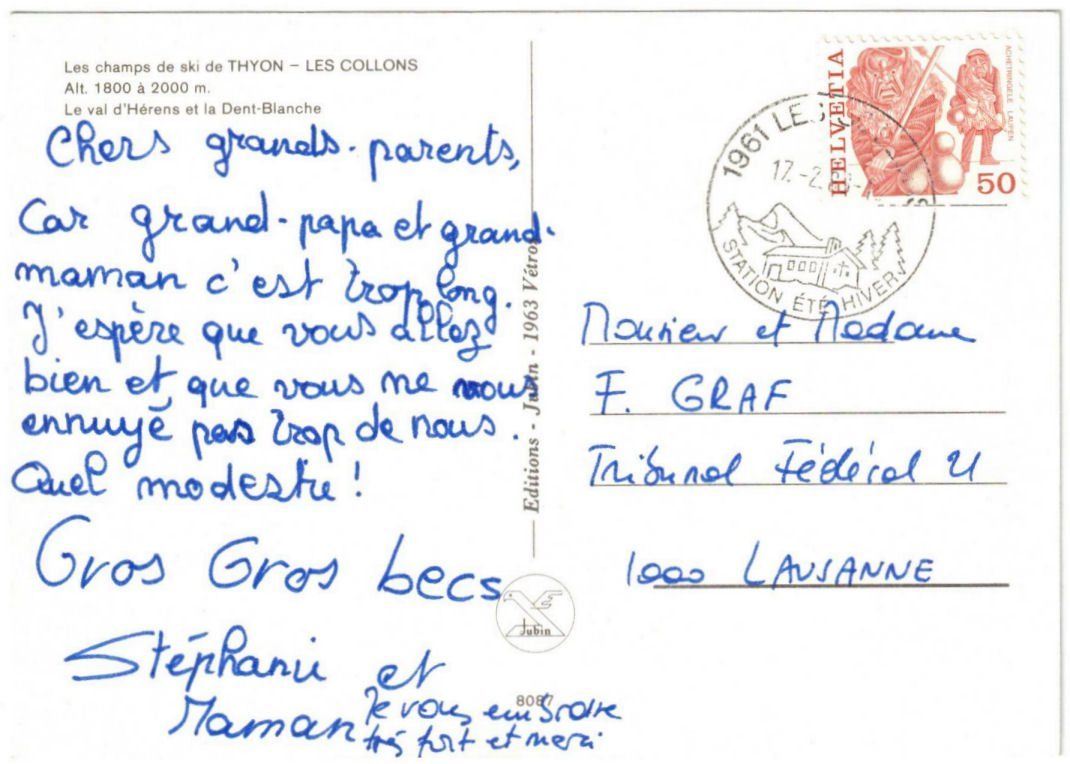 Les champs de ski de THYON – LES COLLONS
Alt. 1800 à 2000 m.
Le val d'Hérens et la Dent-Blanche
Chers grands-parents,
Car grand-papa et grand-
maman c'est trop long.
J'espère que vous allez
bien et que vous ne vous
ennuyé pas trop de nous.
Quel modestie!
Gros Gros becs
Stéphanie et
Maman
Je vous embrasse
très fort et merci
Editions - Jubin - 1963 Vétroz
Jubin
8087
1961 LES
17.-2.
STATION ÉTÉ HIVER
HELVETIA
ACHETRINGELE LAUPEN
50
Monsieur et Madame
F. GRAF
Tribunal Fédéral 21
1000 LAUSANNE